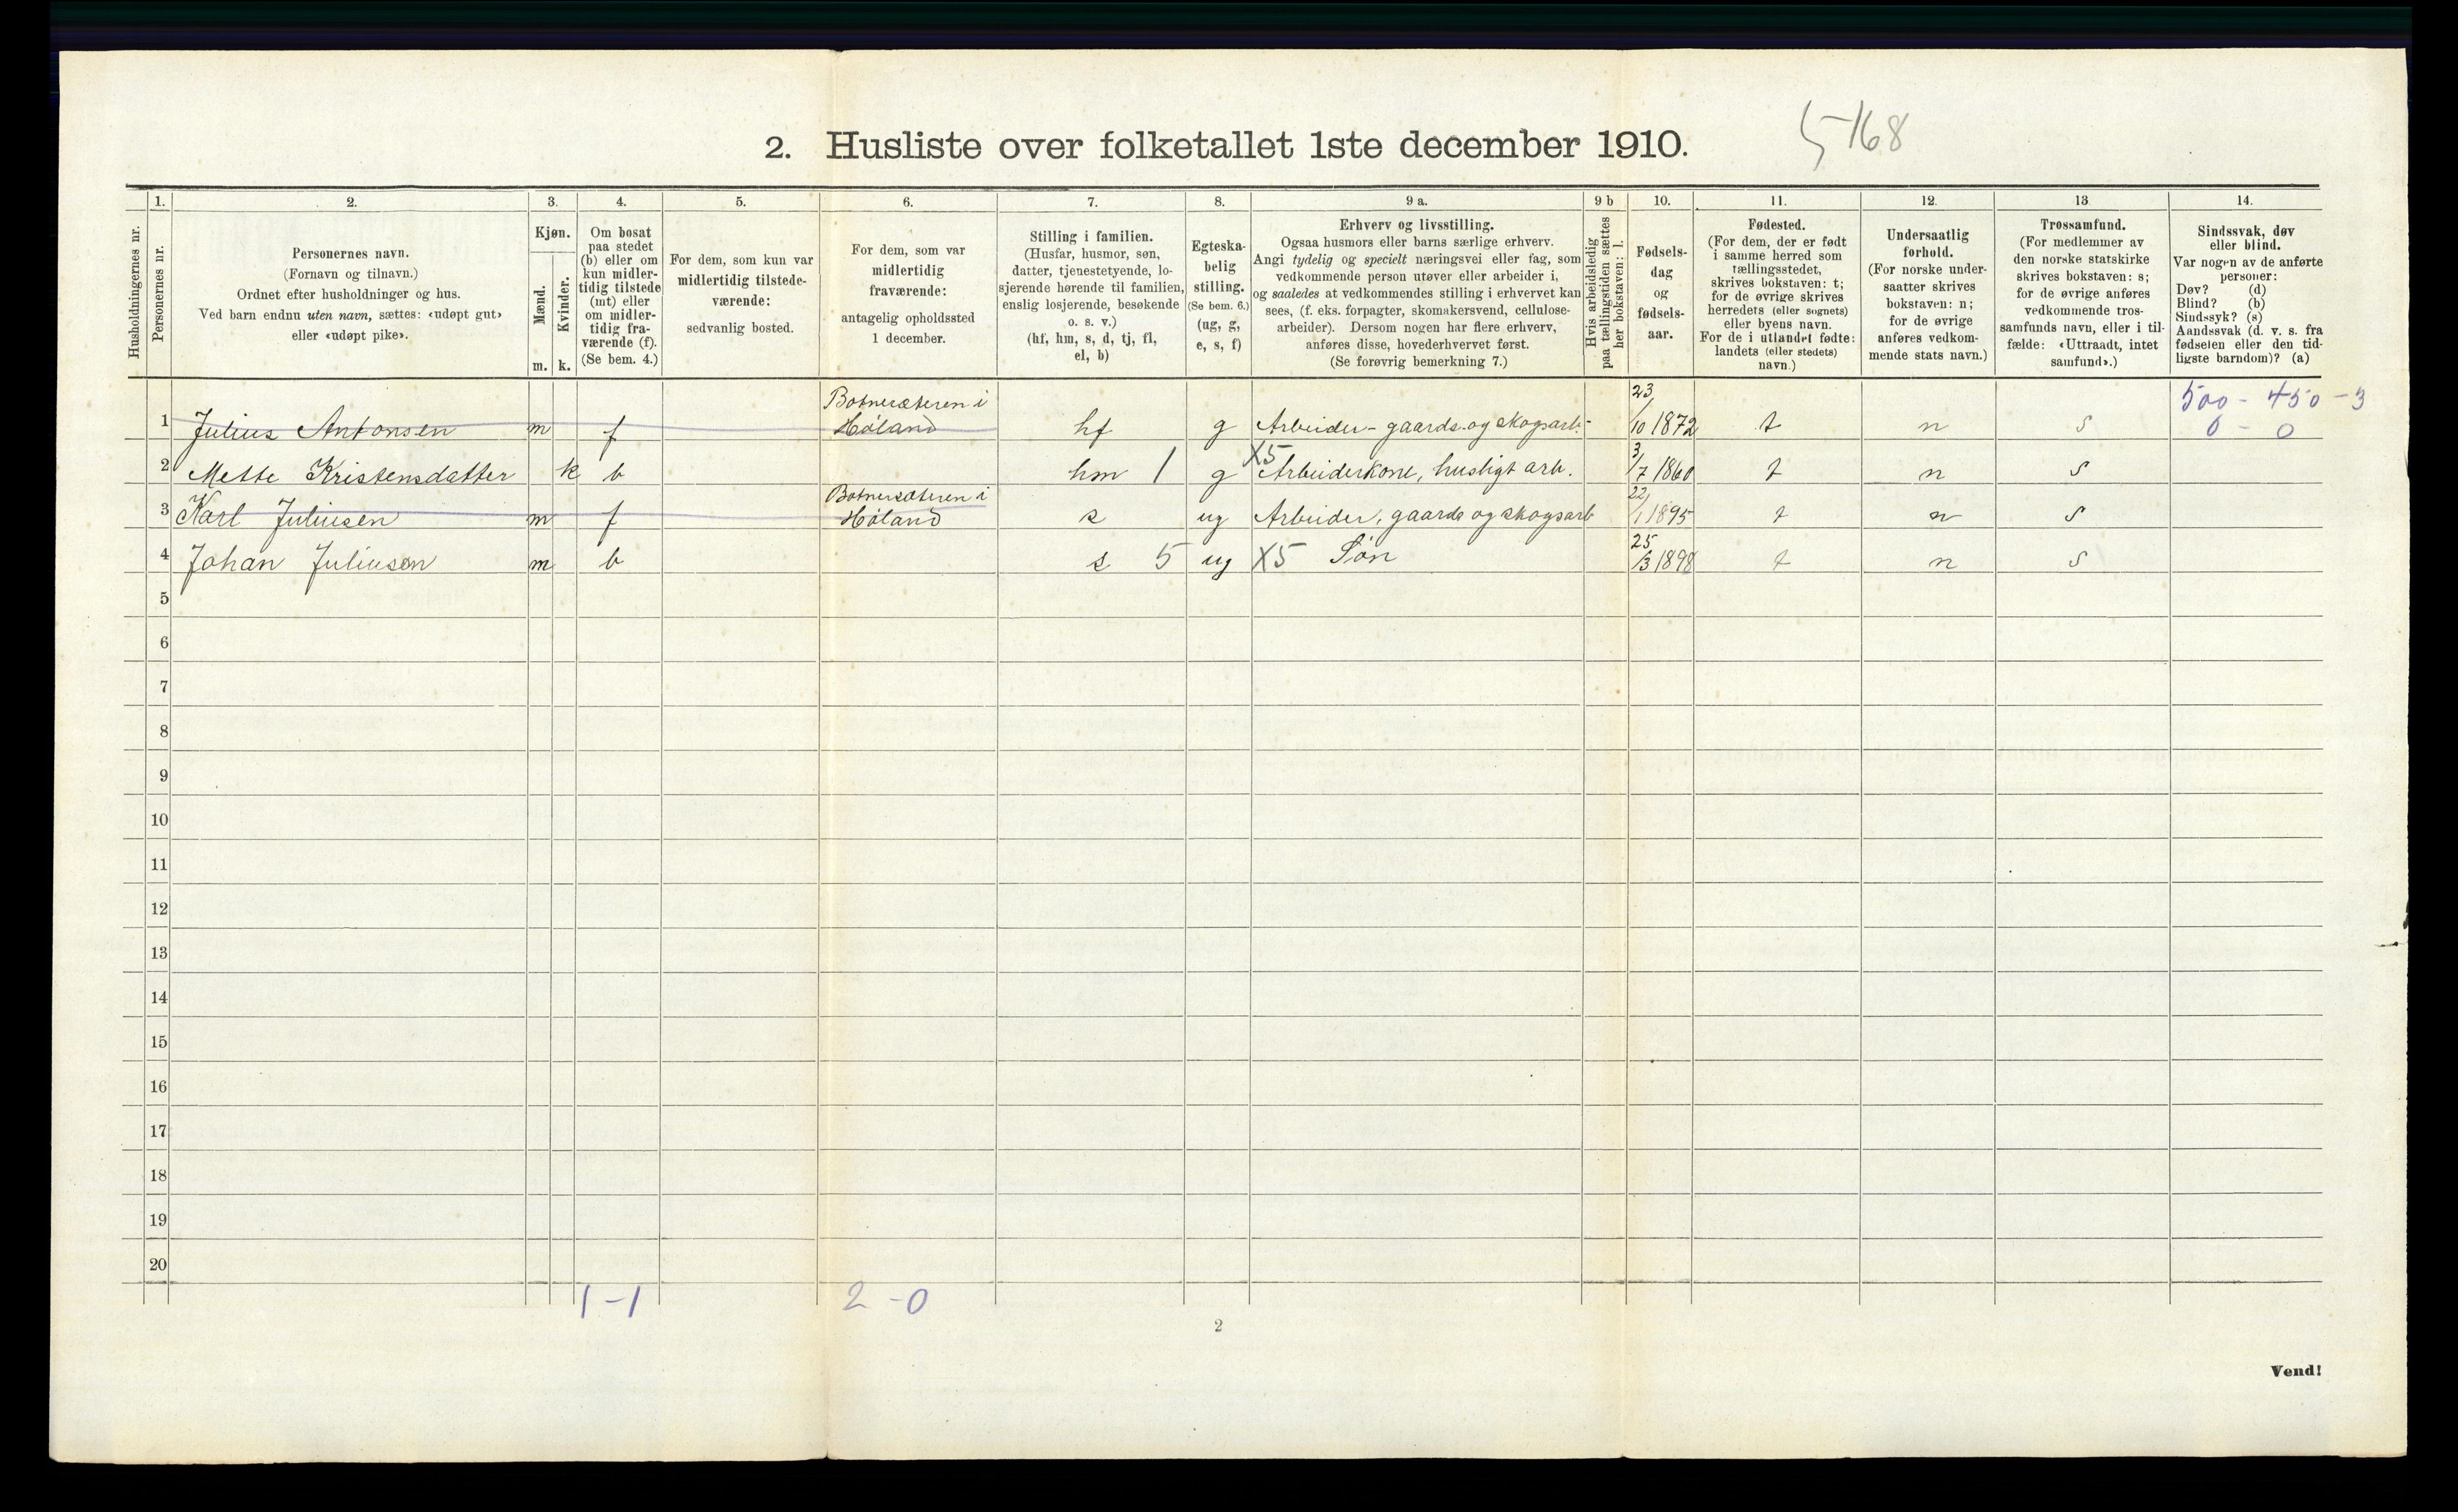 2. Husliste over folketallet 1ste december 1910.
5-168
Husholdningernes nr.
1.
Personernes nr.
2.
Personernes navn.
(Fornavn og tilnavn.)
Ordnet efter husholdninger og hus.
Ved barn endnu uten navn, sættes: «udøpt gut»
eller «udøpt pike».
3.
Kjøn.
Mænd.
Kvinder.
m. k.
4.
Om bosat
paa stedet
(b) eller om
kun midler-
tidig tilstede
(mt) eller
om midler-
tidig fra-
værende (f).
(Se bem. 4.)
5.
For dem, som kun var
midlertidig tilstede-
værende:
sedvanlig bosted.
6.
For dem, som var
midlertidig
fraværende:
antagelig opholdssted
1 december.
7.
Stilling i familien.
(Husfar, husmor, søn,
datter, tjenestetyende, lo-
sjerende hørende til familien,
enslig losjerende, besøkende
o. s. v.)
(hf, hm, s, d, tj, fl,
el, b)
8.
Egteska-
belig
stilling.
(Se bem. 6.)
(ug, g,
e, s, f)
9 a.
Erhverv og livsstilling.
Ogsaa husmors eller barns særlige erhverv.
Angi tydelig og specielt næringsvei eller fag, som
vedkommende person utøver eller arbeider i,
og saaledes at vedkommendes stilling i erhvervet kan
sees, (f. eks. forpagter, skomakersvend, cellulose-
arbeider). Dersom nogen har flere erhverv,
anføres disse, hovederhvervet først.
(Se forøvrig bemerkning 7.)
9 b
Hvis arbeidsledig
paa tællingstiden sættes
her bokstaven: l.
10.
Fødsels-
dag
og
fødsels-
aar.
11.
Fødested.
(For dem, der er født
i samme herred som
tællingsstedet,
skrives bokstaven: t;
for de øvrige skrives
herredets (eller sognets)
eller byens navn.
For de i utlandet fødte:
landets (eller stedets)
navn.)
12.
Undersaatlig
forhold.
(For norske under-
saatter skrives
bokstaven: n;
for de øvrige
anføres vedkom-
mende stats navn.)
13
Trossamfund.
(For medlemmer av
den norske statskirke
skrives bokstaven: s;
for de øvrige anføres
vedkommende tros-
samfunds navn, eller i til-
fælde: «Uttraadt, intet
samfund».)
14.
Sindssvak, døv
eller blind.
Var nogen av de anførte
personer:
Døv? (d)
Blind? (b)
Sindssyk? (s)
Aandssvak (d. v. s. fra
fødselen eller den tid-
ligste barndom)? (a)
Botnersæteren i 23 500 - 450 - 3
1 Julius Antonsen m f Høland hf g Arbeider - gaards- og skogsarb. /10 1872 t n s 0 - 0
2 Mette Kristensdatter k b hm 1 g X5 Arbeiderkone, husligt arb. 3/7 1860 t n s
Botnersæteren i 22
3 Karl Juliusen m f Høland s ug Arbeider, gaards og skogsarb /1 1895 t n s
4 Johan Juliusen m b s 5 ug X5 Søn 25/3 1898 t n s
5
6
7
8
9
10
11
12
13
14
15
16
17
18
19
20
1-1 2-0
2
Vend!